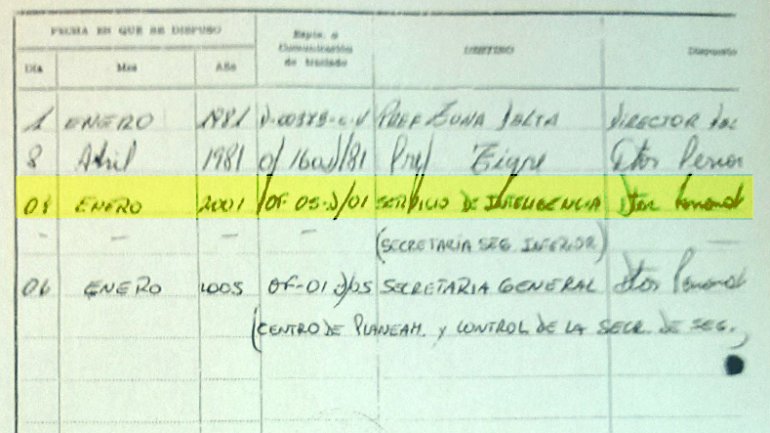 FECHA EN QUE SE DISPUSO
Expte. o Comunicación de traslado
DESTINO
Dispuesto
Día Mes Año
1 ENERO 1981 PREF ZONA DELTA DIRECTOR
8 Abril 1981 Of 160J/81 Pref Tigre Dtor Person
08 ENERO 2001 OF 05-J/01 SERVICIO DE INTELIGENCIA Dtor Personal
- - - - (SECRETARÍA SEG INTERIOR) -
06 ENERO 2005 OF-01 J/05 SECRETARIA GENERAL Dtor Personal
(CENTRO DE PLANEAM. y CONTROL DE LA SECR. DE SEG.)